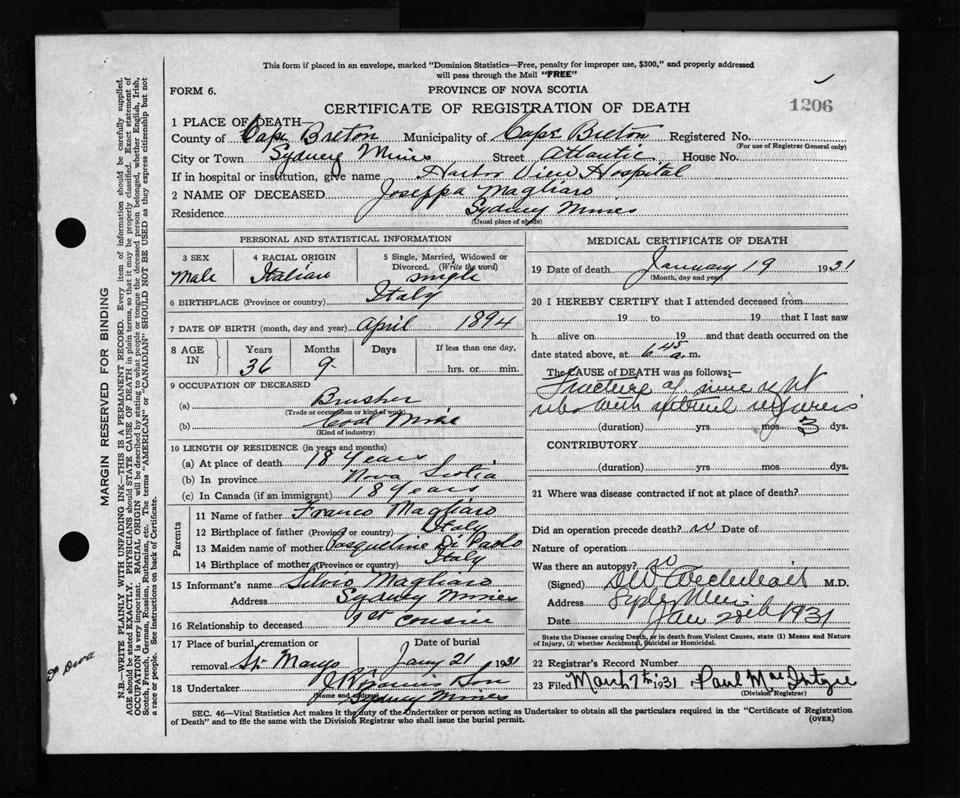 This form if placed in an envelope, marked "Dominion Statistics—Free, penalty for improper use, $300," and properly addressed
will pass through the Mail "FREE"
FORM 6. PROVINCE OF NOVA SCOTIA
CERTIFICATE OF REGISTRATION OF DEATH 1206
1 PLACE OF DEATH
County of Cape Breton Municipality of Cape Breton Registered No.
(For use of Registrar General only)
City or Town Sydney Mines Street Atlantic House No.
If in hospital or institution, give name Harbor View Hospital
2 NAME OF DECEASED Joseppa Magliaro
Residence Sydney Mines
(Usual place of abode)
PERSONAL AND STATISTICAL INFORMATION
3 SEX 4 RACIAL ORIGIN 5 Single, Married, Widowed or Divorced. (Write the word)
Male Italian single
6 BIRTHPLACE (Province or country) Italy
7 DATE OF BIRTH (month, day and year) April 1894
8 AGE IN Years Months Days If less than one day,
36 9 hrs. or min.
9 OCCUPATION OF DECEASED
(a) Brusher
(Trade or occupation or kind of work)
(b) Coal Mine
(Kind of industry)
10 LENGTH OF RESIDENCE (in years and months)
(a) At place of death 18 Years
(b) In province Nova Scotia
(c) In Canada (if an immigrant) 18 Years
Parents
11 Name of father Franco Magliaro
12 Birthplace of father (Province or country) Italy
13 Maiden name of mother Pasqueline Di Paolo
14 Birthplace of mother (Province or country) Italy
15 Informant's name Silvio Magliaro
Address Sydney Mines
16 Relationship to deceased 1st cousin
17 Place of burial, cremation or removal Date of burial
St Marys Jany 21 1931
18 Undertaker Son
(Name and address) Sydney Mines
MEDICAL CERTIFICATE OF DEATH
19 Date of death January 19 1931
(Month, day and year)
20 I HEREBY CERTIFY that I attended deceased from
19 to 19 that I last saw
h alive on 19 and that death occurred on the
date stated above, at 6 45 a. m.
The CAUSE of DEATH was as follows:—
Fracture of right
ribs with
(duration) yrs. mos 3 dys.
CONTRIBUTORY
(duration) yrs. mos dys.
21 Where was disease contracted if not at place of death?
Did an operation precede death? Date of
Nature of operation
Was there an autopsy? no
(Signed) M.D.
Address
Date Jan 1931
State the Disease causing Death, or in death from Violent Causes, state (1) Means and Nature
of Injury, (2) whether Accidental, Suicidal or Homicidal.
22 Registrar's Record Number
23 Filed March 7th 1931 Paul MacIntyre
(Division Registrar)
SEC. 46—Vital Statistics Act makes it the duty of the Undertaker or person acting as Undertaker to obtain all the particulars required in the "Certificate of Registration
of Death" and to file the same with the Division Registrar who shall issue the burial permit. (OVER)
MARGIN RESERVED FOR BINDING
N.B.—WRITE PLAINLY WITH UNFADING INK—THIS IS A PERMANENT RECORD. Every item of information should be carefully supplied.
AGE should be stated EXACTLY. PHYSICIANS should STATE CAUSE OF DEATH in plain terms, so that it may be properly classified. Exact statement of
OCCUPATION is very important. RACIAL ORIGIN will be described by stating to what people or tongue the deceased person belonged, whether English, Irish,
Scotch, French, German, Russian, Ruthenian, etc. The terms "AMERICAN" or "CANADIAN" SHOULD NOT BE USED as they express citizenship but not
a race or people. See instructions on back of Certificate.